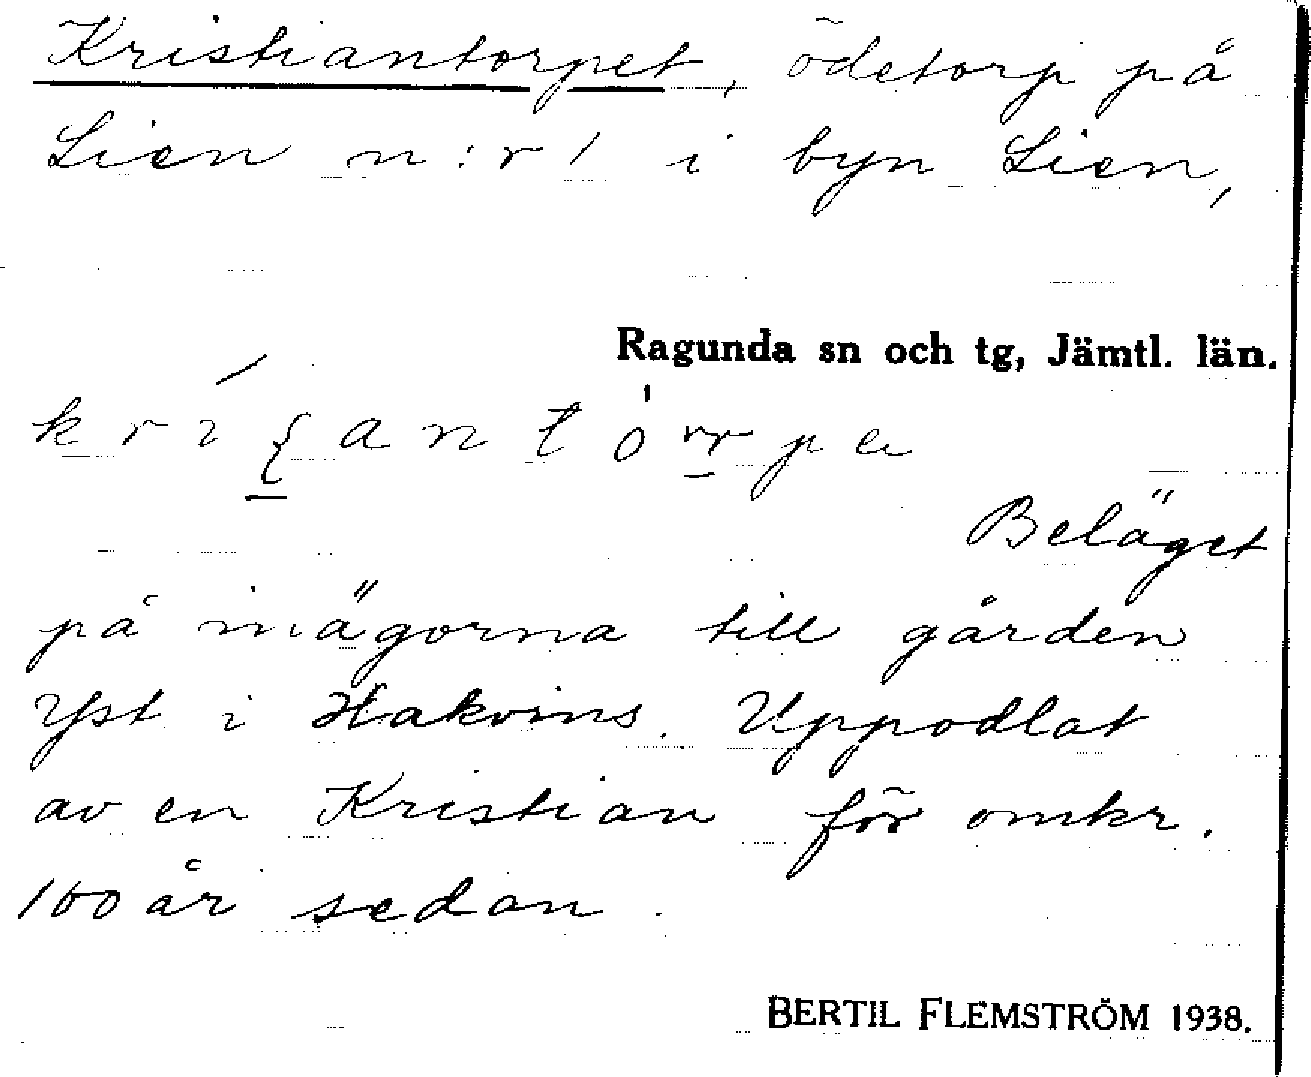 Kristiantorpet, ödetorp på
Lien n:r 1 i byn Lien,
Ragunda sn och tg, Jämtl. län.
Beläget
på inägorna till gården
Yst i Hakvins. Uppodlat
av en Kristian för omkr.
100 år sedan.
BERTIL FLEMSTRÖM 1938.